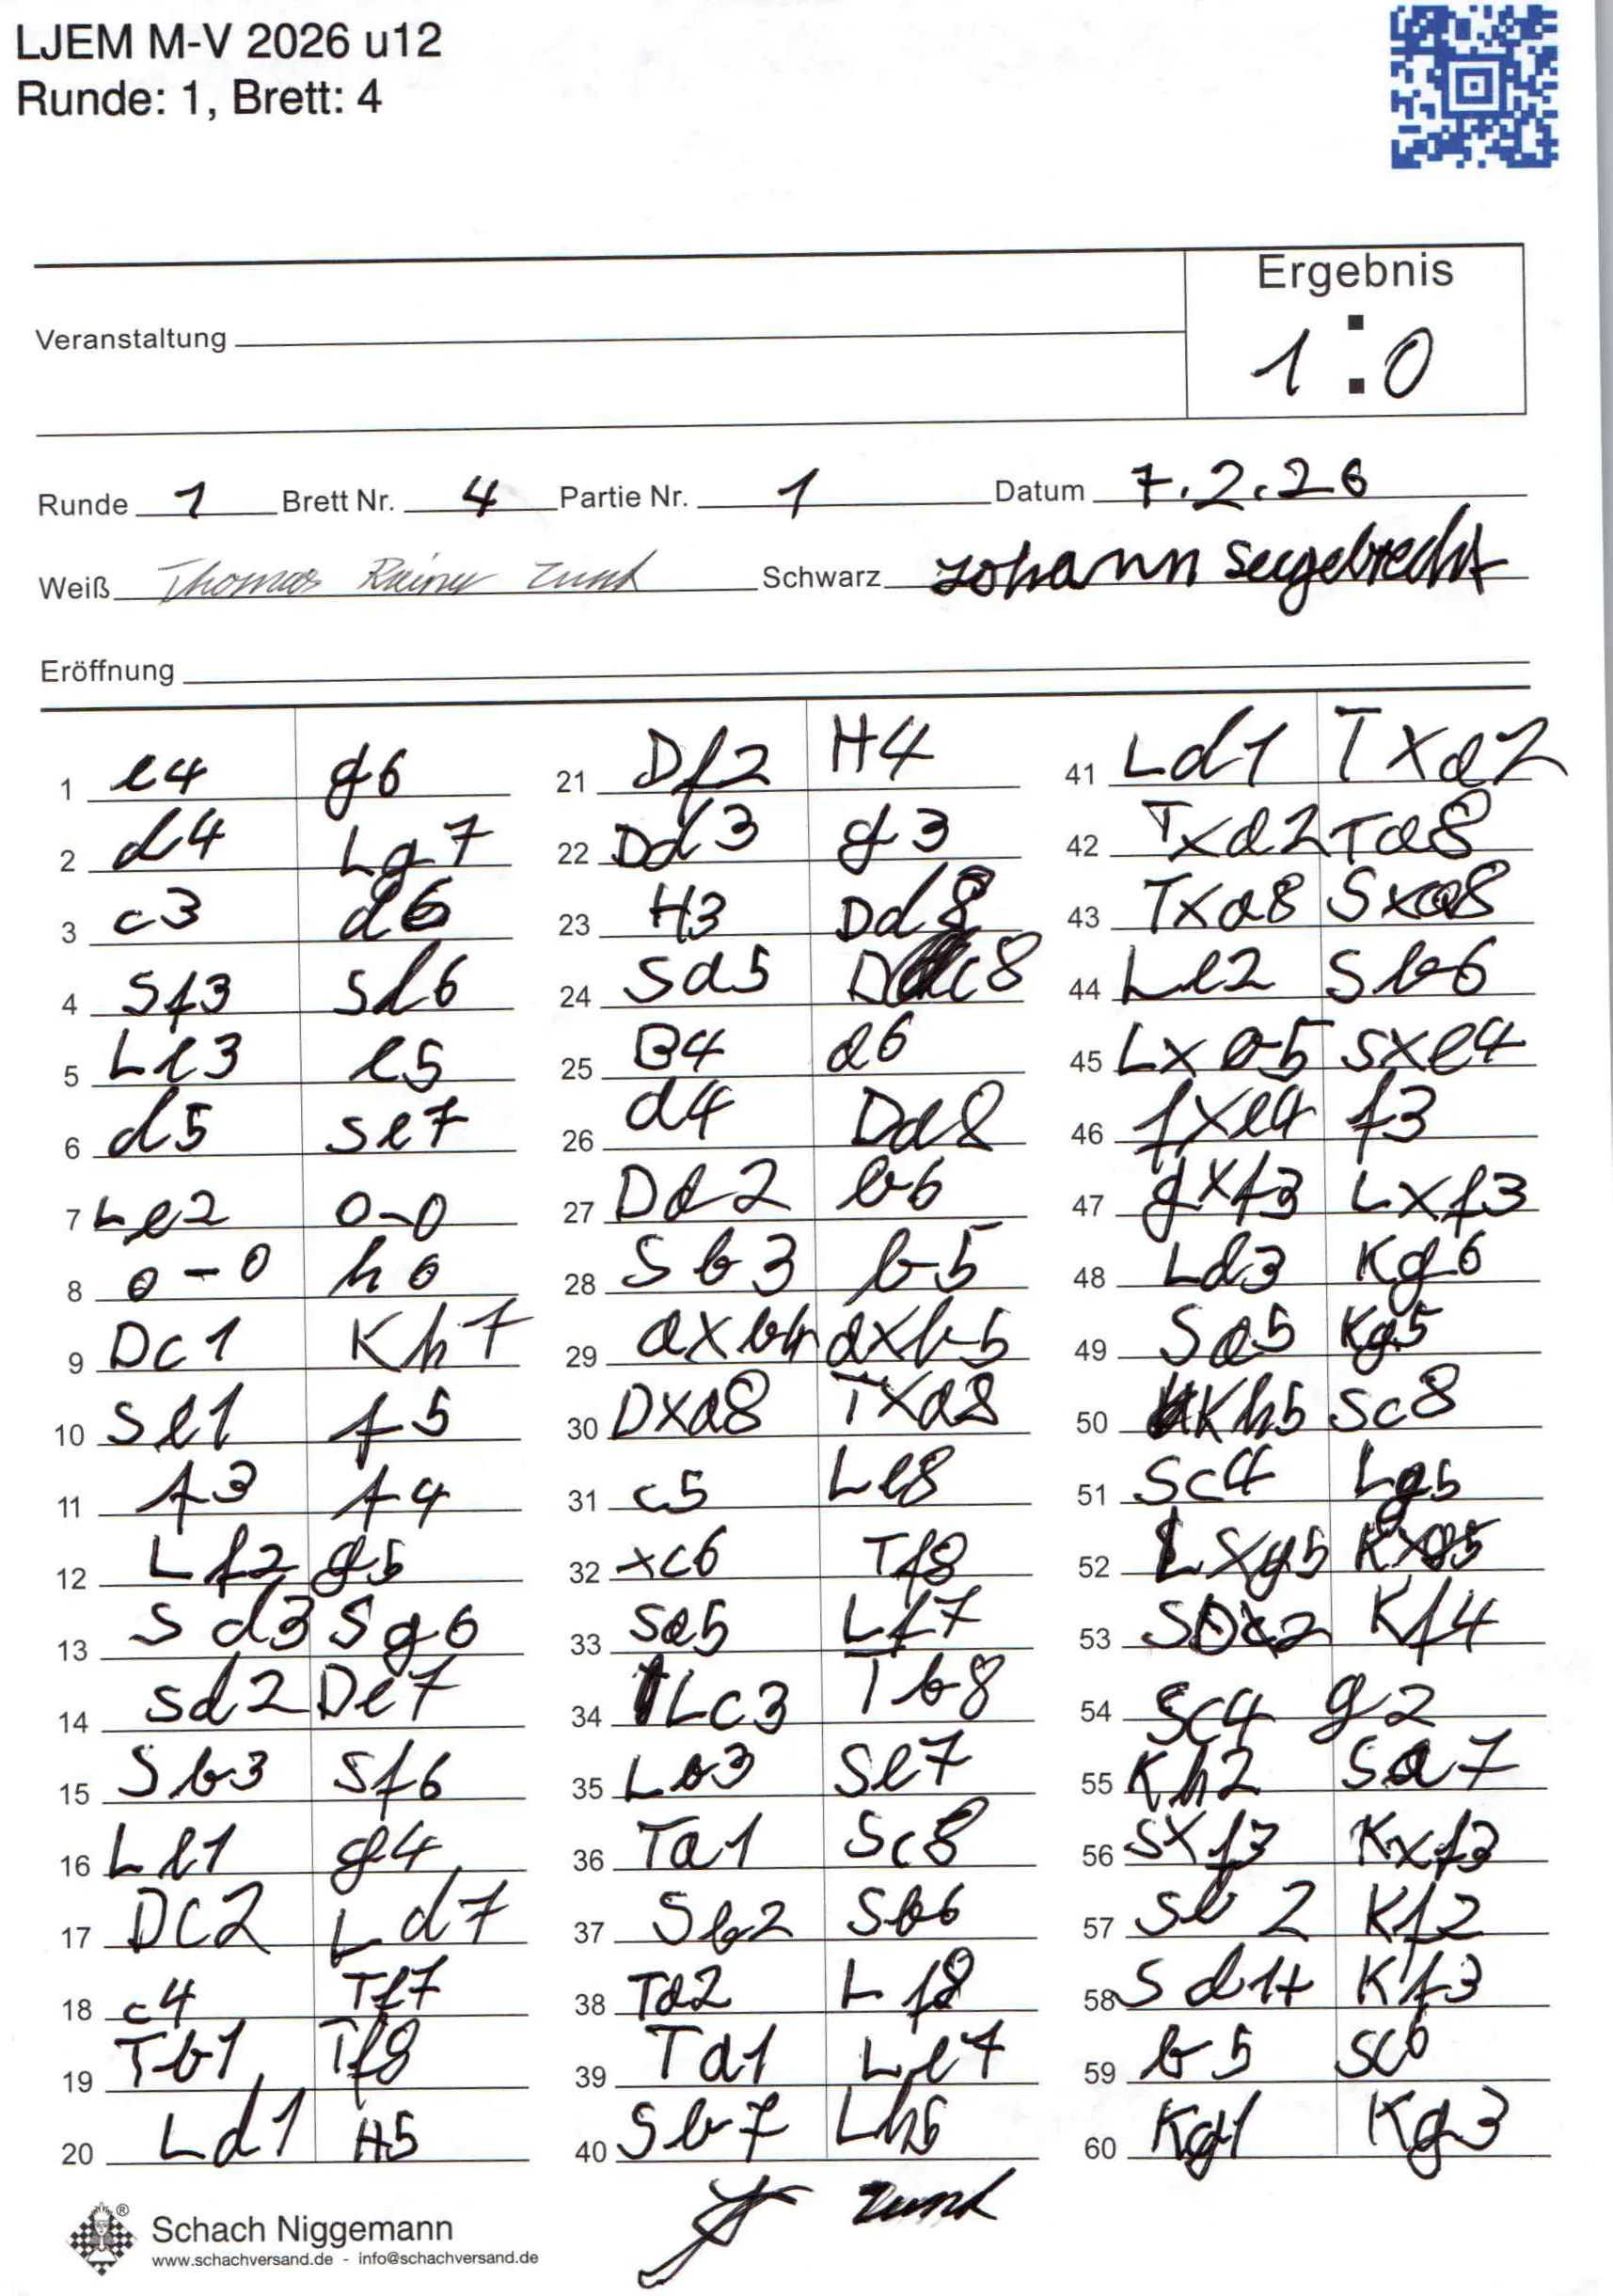 LJEM M-V 2026 u12
Runde: 1, Brett: 4
Ergebnis
Veranstaltung
1 : 0
Runde 1 Brett Nr. 4 Partie Nr. 1 Datum 7.2.26
Weiß Thomas Rainer Zunk Schwarz Johann Seegebrecht
Eröffnung
1 e4 g6
2 d4 Lg7
3 c3 d6
4 Sf3 Sd6
5 Le3 e5
6 d5 Se7
7 Le2 0-0
8 0-0 h6
9 Dc1 Kh7
10 Se1 f5
11 f3 f4
12 Lf2 g5
13 Sd3 Sg6
14 Sd2 De7
15 Sb3 Sf6
16 Le1 g4
17 DC2 Ld7
18 c4 Tf7
19 Tb1 Tf8
20 Ld1 H5
21 Df2 H4
22 Dd3 g3
23 H3 Dd8
24 Sa5 Dc8
25 B4 a6
26 a4 Dd8
27 Dd2 b6
28 Sb3 b5
29 axb4 axb5
30 Dxa8 Txa8
31 c5 Le8
32 xc6 Tf8
33 Sa5 Lf7
34 Lc3 Tb8
35 Lb3 Se7
36 Ta1 Sc8
37 Sb2 Sb6
38 Ta2 Lf8
39 Ta1 Le7
40 Sb7 Lh6
41 Ld1 Txa2
42 Txa2 Ta8
43 Txa8 Sxa8
44 Le2 Sb6
45 Lxb5 Sxe4
46 fxe4 f3
47 gxf3 Lxf3
48 Ld3 Kg6
49 Sa5 Kg5
50 Kh5 Sc8
51 Sc4 Lg5
52 Lxg5 Kxg5
53 Kf4
54 Sc4 g2
55 Kh2 Sa7
56 Sxf3 Kxf3
57 Sb2 Kf2
58 Sd1+ Kf3
59 b5 Sc6
60 Kg1 Kg3
Zunk
Schach Niggemann
www.schachversand.de - info@schachversand.de